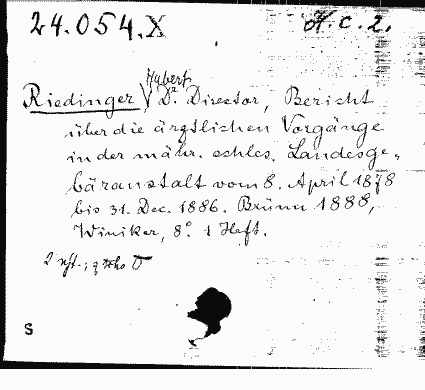 24.054.X H.C.2.
Hubert
Riedinger Dr. Director, Bericht
über die ärztlichen Vorgänge
in der mähr. schles. Landesge-
bäranstalt vom 8. April 1878
bis 31. Dec. 1886. Brünn 1888,
Winiker, 8º. 1 Heft.
S